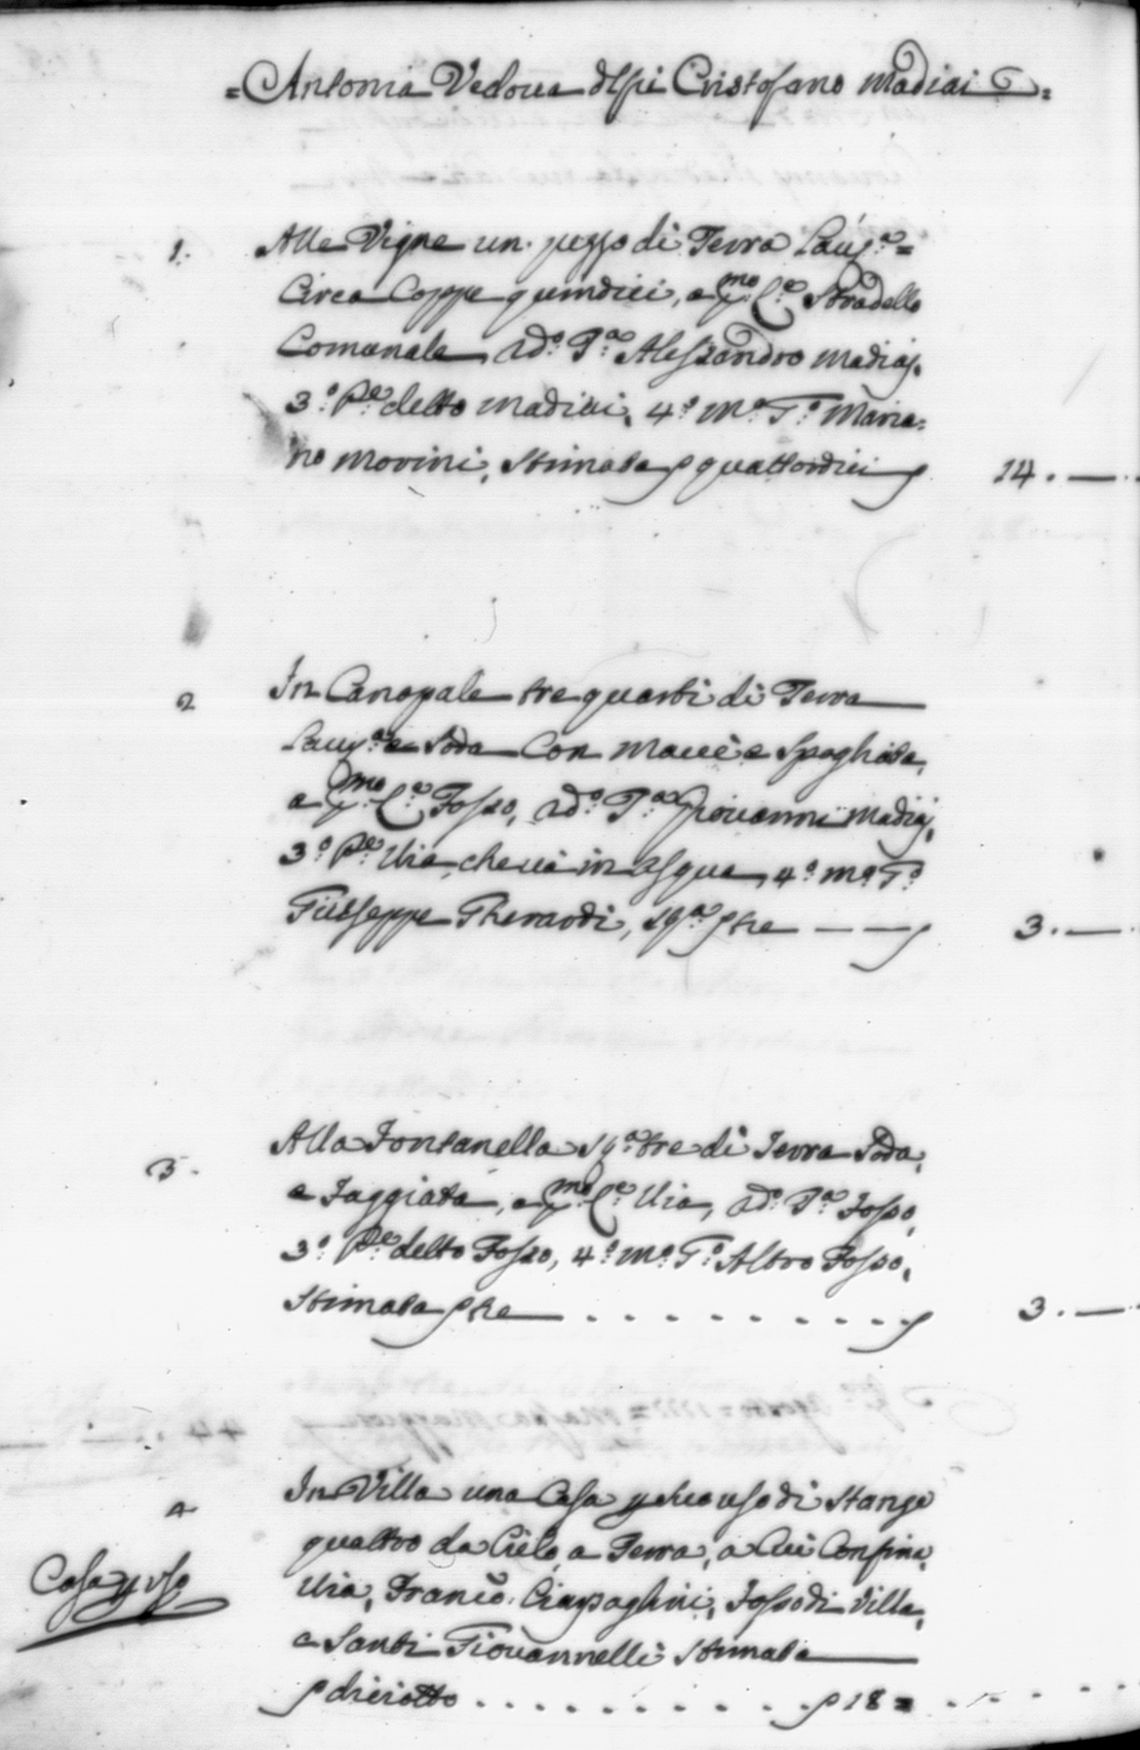 = Antonia Vedoua del qu: Cristofano Madiai =
1. Alle Vigne un pezzo di Terra Lau:ª =
Circa Coppe quindici, a p:mo C:e Stradello
Comunale, ad:o T:a Alessandro Madiaj,
3:o P:e detto Madiai, 4:o M:o T:o Maria=
no Morini, Stimata p quattordici 14. —
2 In Canopale tre quarti di Terra
Lau:ª e Soda Con Macè e Spoghiata,
a p:mo C:e Fosso, ad:o T:a Giouanni Madiaj,
3:o P:e Uia, che uà in Acqua, 4:o M:o T:o
Giuseppe Gherardi, St:a p tre — — 3. —
3. Alla Fontanella St:a tre di Terra Soda,
e Faggiata, a p:mo C:e Uia, ad:o T:a Fosso,
3:o P:e detto Fosso, 4:o M:o T:o Altro Fosso,
Stimata p tre . . . . . . . . . 3. —
4 In Villa una Casa p suo uso di Stanze
quattro da Cielo, a Terra, a Cui Confina,
Casa p uso
Uia, Franc:o Ciapaghini, Fosso di Villa,
e Santi Giouannelli Stimata
p dieciotto . . . . . . . . . p 18 =